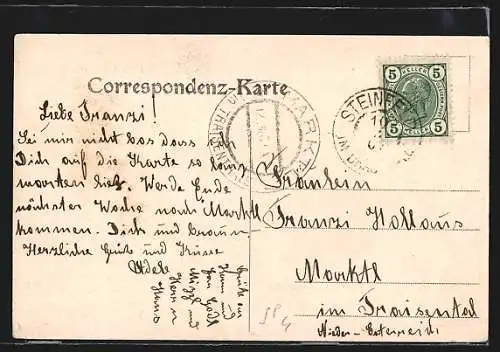 Correspondenz-Karte
5 HELLER 5
5 5
MARKTL
IM TRAISENTHAL
STEINB
Liebe Franzi!
Sei mir nicht bös dass ich
Dich auf die Karte so lang
warten ließ. Werde Ende
nächster Woche nach Marktl
kommen. Dich und
Herzliche Grüße und Küsse
Adele
Fräulein
Franzi Hollaus
Marktl
im Traisental
Nieder-Österreich